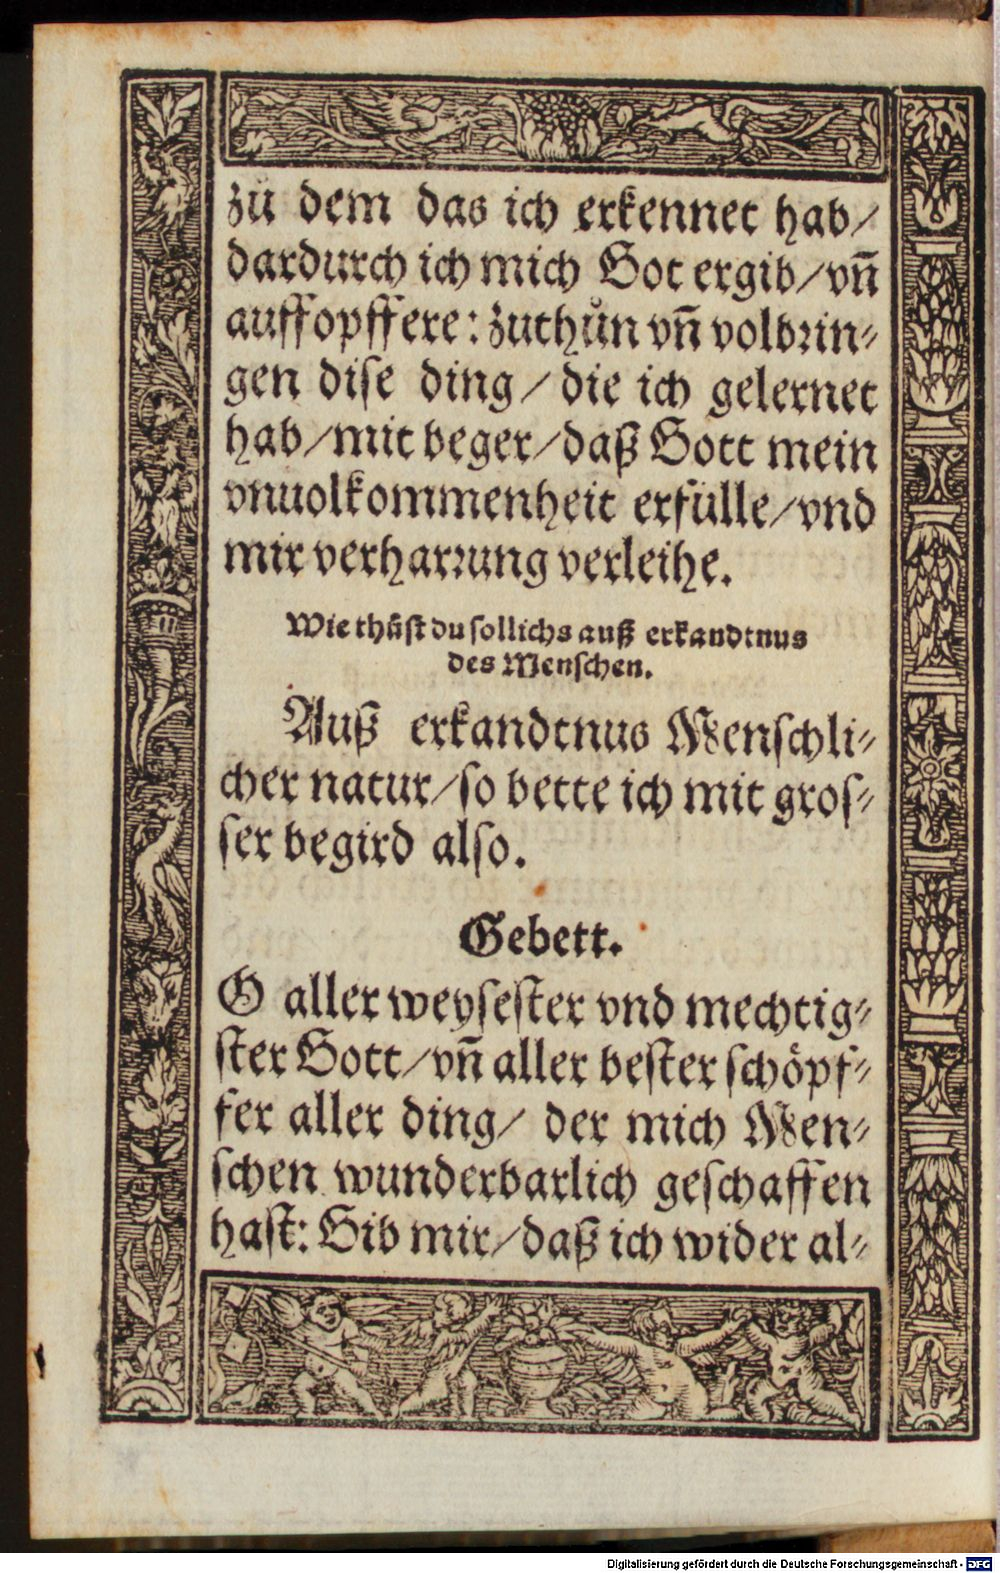 zů dem das ich erkennet hab/
dardurch ich mich Got ergib/vñ
auffopffere: zuthůn vñ volbrin⸗
gen dise ding/ die ich gelernet
hab/mit beger/daß Gott mein
vnuolkommenheit erfülle/vnd
mir verharrung verleihe.
Wie thůst du sollichs auß erkandtnus
des Menschen.
Auß erkandtnus Menschli⸗
cher natur/so bette ich mit gros⸗
ser begird also.
Gebett.
O aller weysester vnd mechtig⸗
ster Gott/vñ aller bester schöpf⸗
fer aller ding/ der mich Men⸗
schen wunderbarlich geschaffen
hast: Gib mir/daß ich wider al⸗
Digitalisierung gefördert durch die Deutsche Forschungsgemeinschaft - DFG